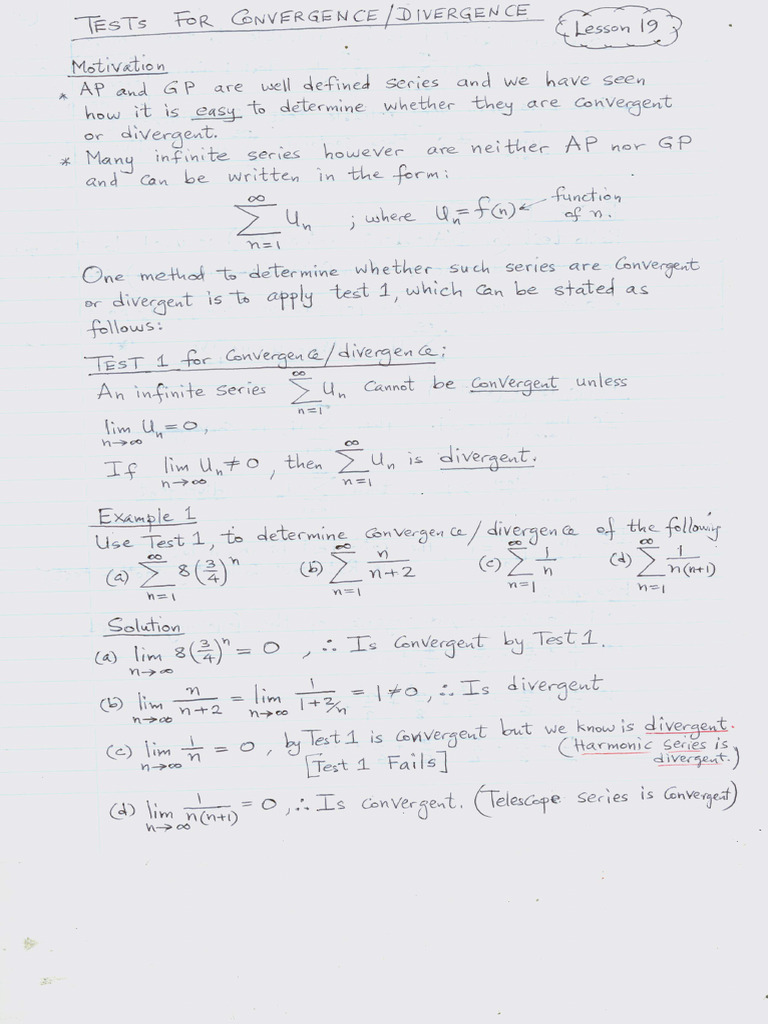 TESTS FOR CONVERGENCE/DIVERGENCE
Lesson 19
Motivation
* AP and GP are well defined series and we have seen
how it is easy to determine whether they are convergent
or divergent.
* Many infinite series however are neither AP nor GP
and can be written in the form:
∞∑n=1 Un ; where Un = f(n) ← function of n.
One method to determine whether such series are convergent
or divergent is to apply test 1, which can be stated as
follows:
TEST 1 for convergence/divergence:
An infinite series ∞∑n=1 Un cannot be convergent unless
lim n→∞ Un = 0,
If lim n→∞ Un ≠ 0, then ∞∑n=1 Un is divergent.
Example 1
Use Test 1, to determine convergence/divergence of the following
(a) ∞∑n=1 8(3/4)^n (b) ∞∑n=1 n/(n+2) (c) ∞∑n=1 1/n (d) ∞∑n=1 1/n(n+1)
Solution
(a) lim n→∞ 8(3/4)^n = 0, ∴ Is convergent by Test 1.
(b) lim n→∞ n/(n+2) = lim n→∞ 1/(1+2/n) = 1 ≠ 0, ∴ Is divergent
(c) lim n→∞ 1/n = 0, by Test 1 is convergent but we know is divergent.
[Test 1 Fails] (Harmonic series is divergent.)
(d) lim n→∞ 1/n(n+1) = 0, ∴ Is convergent. (Telescope series is convergent)